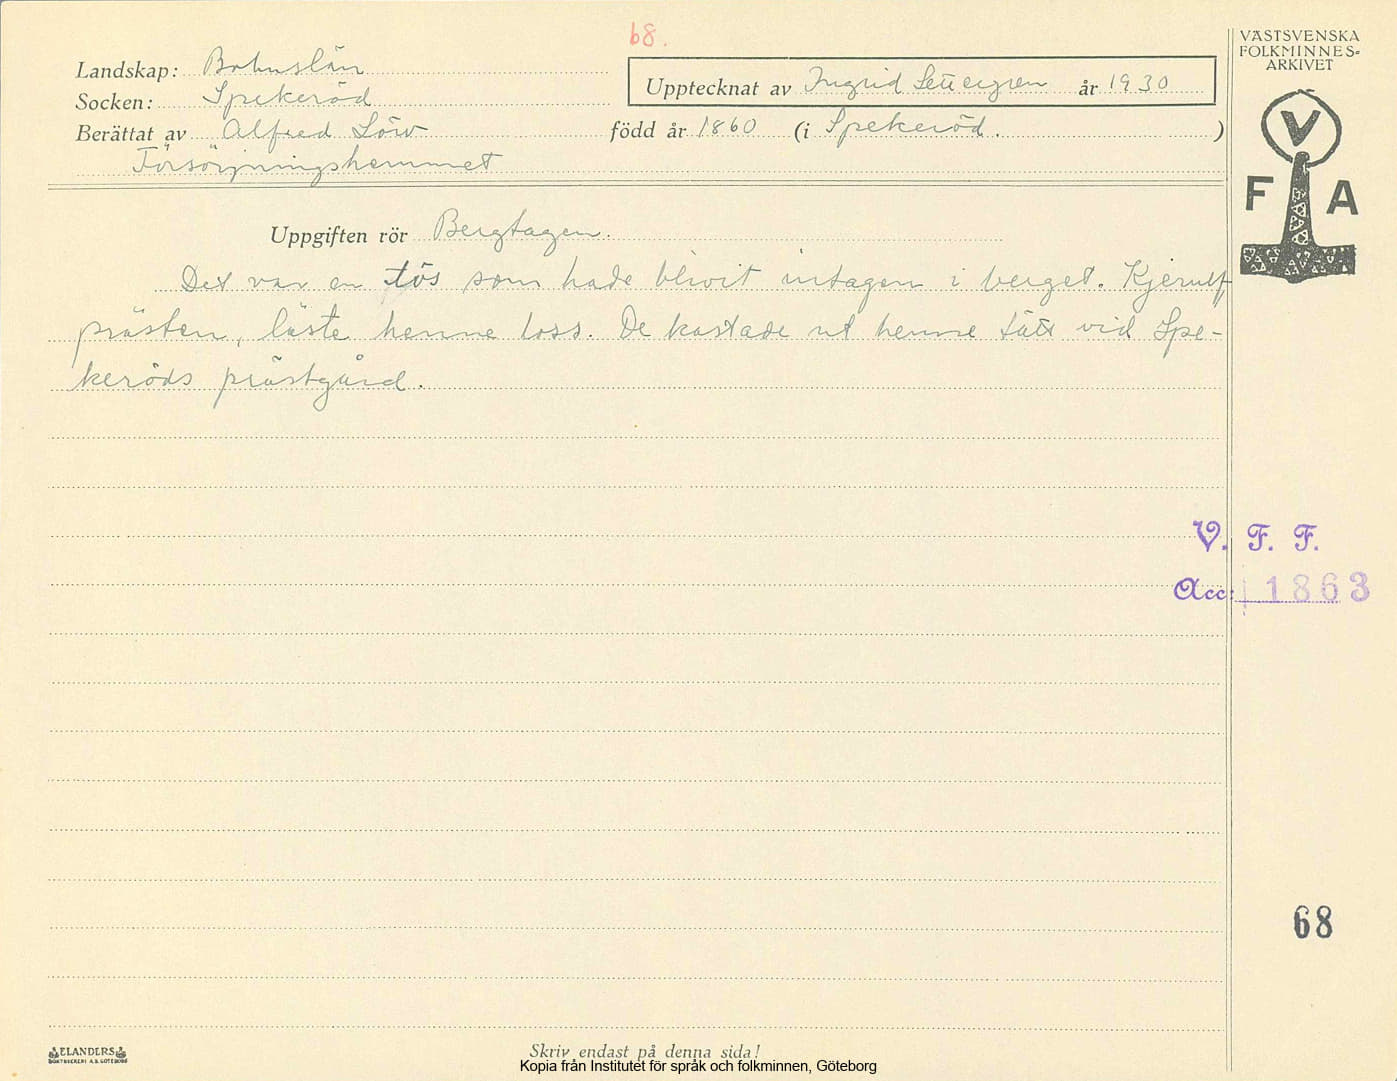 68.
VÄSTSVENSKA
FOLKMINNES-
ARKIVET
Landskap: Bohuslän
Upptecknat av Ingrid Settergren år 1930
Socken: Spekeröd
Berättat av Alfred Löw född år 1860 (i Spekeröd. )
Försörjningshemmet
V
F A
Uppgiften rör Bergtagen.
Det var en tös som hade blivit intagen i berget. Kjerulf
prästen, läste henne loss. De kastade ut henne tätt vid Spe-
keröds prästgård.
V. F. F.
Acc: 1863
68
ELANDERS
BOKTRYCKERI A.B. GÖTEBORG
Skriv endast på denna sida!
Kopia från Institutet för språk och folkminnen, Göteborg